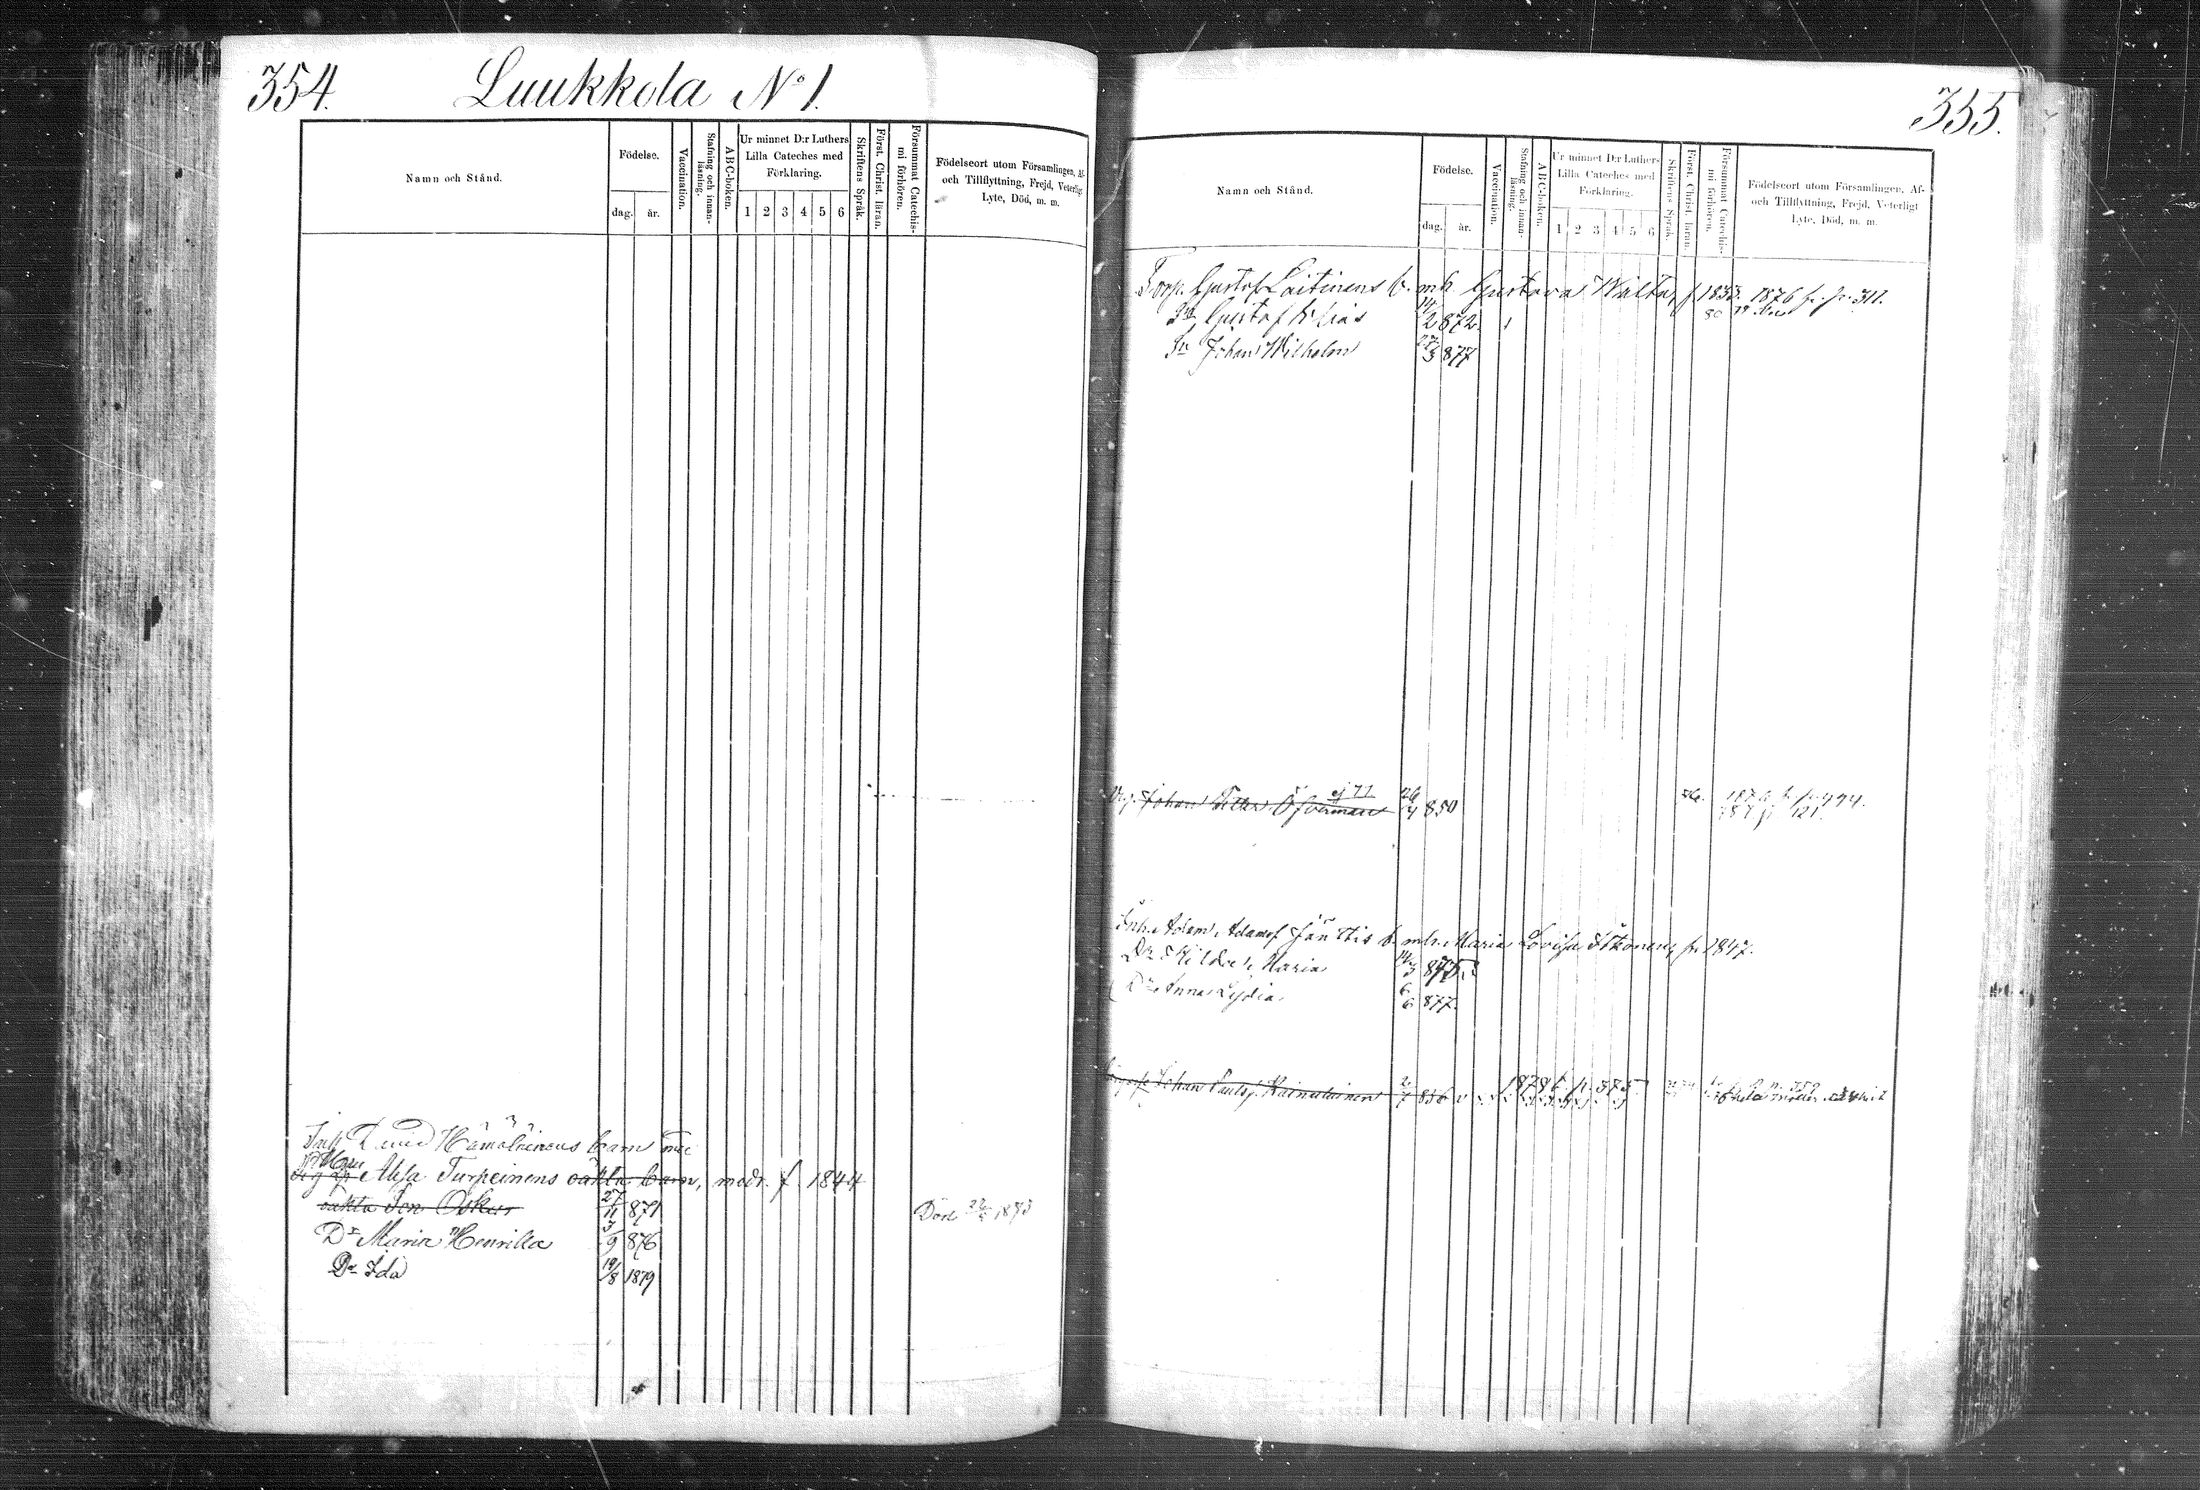 354. Luukkola No 1.
Namn och Stånd.
Födelse.
dag. år.
Vaccination.
Stafning och innan-
läsning.
ABC-boken.
Ur minnet D:r Luthers
Lilla Cateches med
Förklaring.
1 2 3 4 5 6
Skriftens Språk.
Först. Christ. läran.
Försummat Catechis-
mi förhören.
Födelseort utom Församlingen, Af-
och Tillflyttning, Frejd, Veterligt
Lyte, Död, m. m.
Hämäläinens barn med
Turpeinens oäkta barn, modr. f. 1844
oäkta Son Oskar 27/11 871 Död 1873
Dr Maria Henrika 3/9 876
Dr Ida 19/8 1879
355.
Namn och Stånd.
Födelse.
dag. år.
Vaccination.
Stafning och innan-
läsning.
ABC-boken.
Ur minnet D:r Luthers
Lilla Cateches med
Förklaring.
1 2 3 4 5 6
Skriftens Språk.
Först. Christ. läran.
Försummat Catechis-
mi förhören.
Födelseort utom Församlingen, Af-
och Tillflyttning, Frejd, Veterligt
Lyte, Död, m. m.
Torp. Gustaf Laitinens b. mh. Gustava f. 1833. 1876 fr. p. 311.
Sn Gustaf Elias 14/2 872
Sn Johan Wilhelm 27/3 877
Johan Öfverman ej 77 26/4 850
Inh. Adam Adamsf. Jänttis b. mh. Maria Lovisa f. 1847.
Dr Hilda Maria 14/3 875
Dr Anna Lydia 6/6 877.
Johan Paulsf. Kainulainen 2/7 856 p. 375